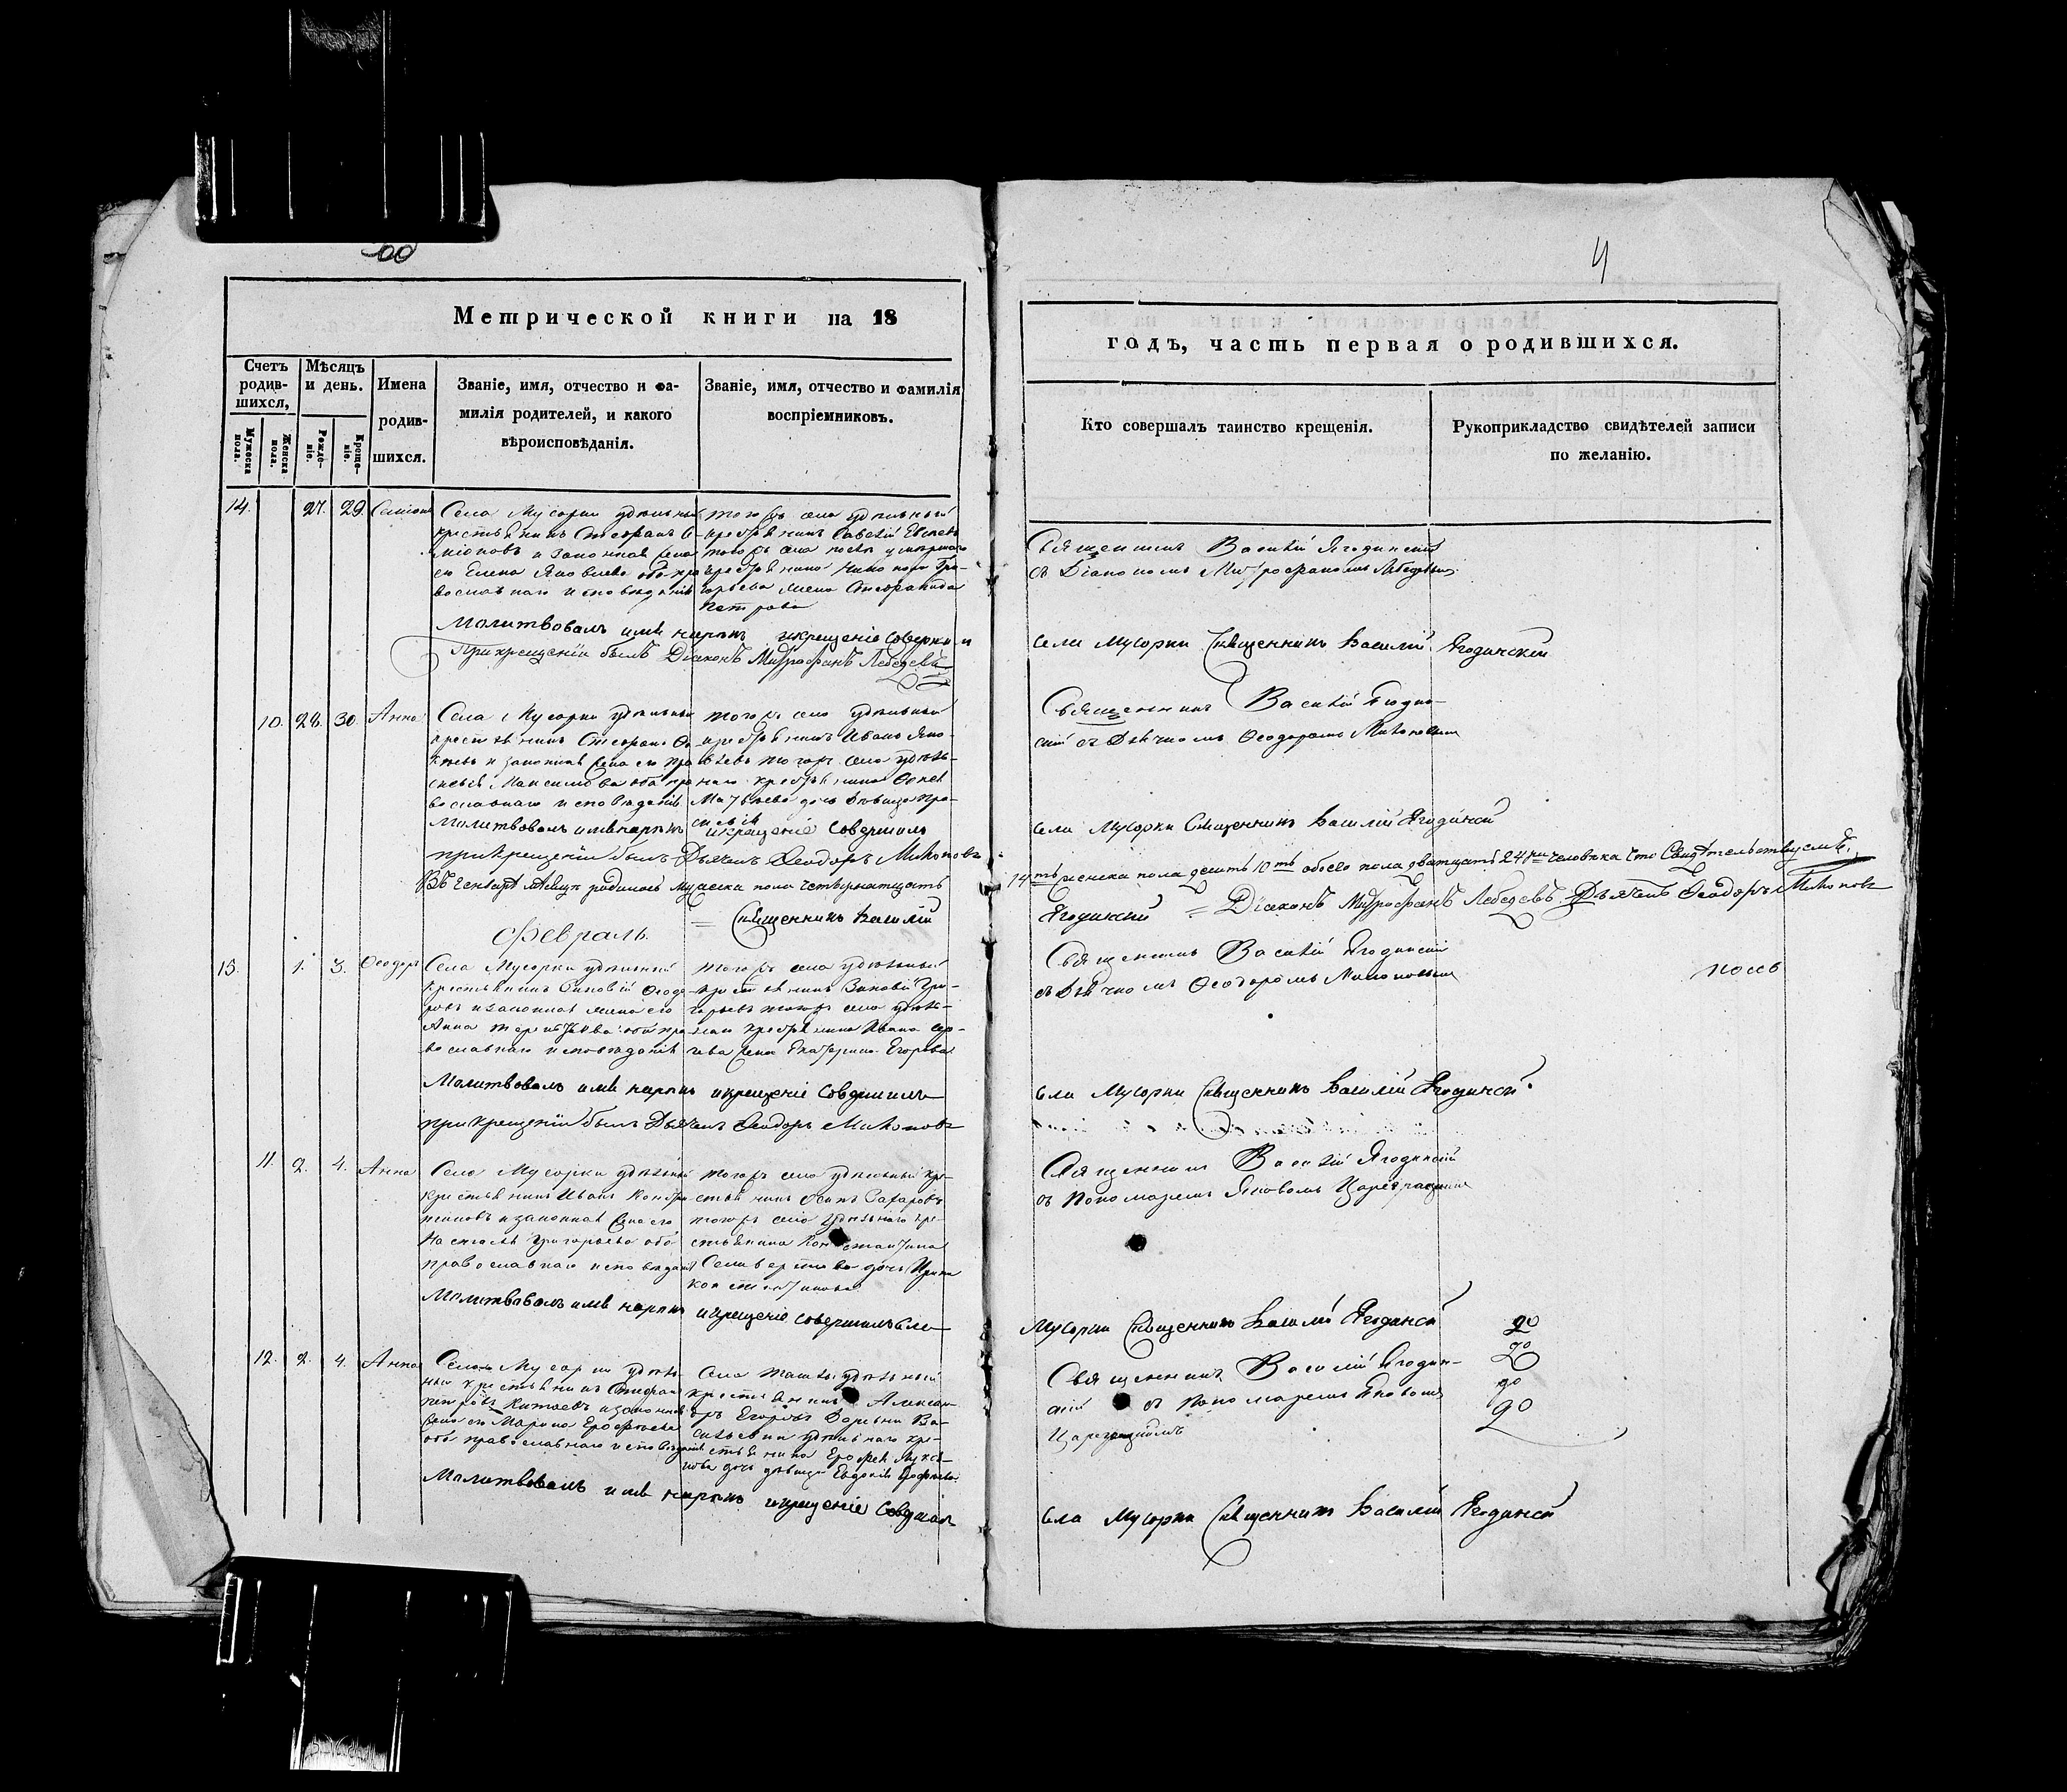 60
4
Метрической книги на 18
годъ, часть первая о родившихся.
Счетъ родив-шихся,
Мужеска пола.
Женска пола.
Мѣсяцъ и день.
Рожде-ніе.
Креще-ніе.
Имена родив-шихся.
Званіе, имя, отчество и фа-
милія родителей, и какого
вѣроисповѣданія.
Званіе, имя, отчество и фамилія
воспріемниковъ.
Кто совершалъ таинство крещенія.
Рукоприкладство свидѣтелей записи
по желанію.
14. 27. 29.
Села Мусорки удѣльный
крестьянинъ Стефанъ
и законная жена
его Елена Яковлева оба пра
вославнаго исповѣданія
тогожъ села удѣльный
крестьянинъ Савелій
тогожъ села
крестьянина
жена Степанида
Петрова
Священникъ Василій Ягодинскій
съ Діакономъ Митрофаномъ Лебедевымъ
Молитвовалъ имя нарекъ и крещеніе совершил
села Мусорки Священникъ Василій Ягодинской
При крещеніи былъ Діаконъ Митрофанъ Лебедевъ
10. 28. 30. Анна
Села Мусорки удѣльный
крестьянинъ Стефанъ
и законная жена его Пра
сковья Максимова оба пра
вославнаго исповѣданія
тогожъ села удѣльный
крестьянинъ Иванъ Яко-
влевъ тогожъ села удѣль-
наго крестьянина
Матвѣева дочь дѣвица Пра-
сковья
Священникъ Василій Ягодин-
скій съ Дьячкомъ Ѳеодоромъ Миконовымъ
Молитвовалъ имя нарекъ и крещеніе совершилъ
села Мусорки Священникъ Василій Ягодинской
при крещеніи былъ Дьячекъ Ѳеодоръ Миконовъ
Въ Генварѣ мѣсяцѣ родилось мужеска пола четырнатцать
14ть женска пола десять 10ть обоего пола дватцать 24ри человѣка что свидѣтельствуемъ.
Священникъ Василій
Ягодинской Діаконъ Митрофанъ Лебедевъ Дьячекъ Ѳеодоръ Миконовъ
Февраль.
15. 1. 3. Ѳеодоръ
Села Мусорки удѣльный
крестьянинъ Зиновій Ѳеодо-
ровъ и законная жена его
Анна Терентьева оба пра
вославнаго исповѣданія
тогожъ села удѣльный
крестьянинъ Зиновій Гри-
горьевъ тогожъ села удѣль-
наго крестьянина Ивана
жена Екатерина Егорова
Священникъ Василій Ягодинскій
съ Дьячкомъ Ѳеодоромъ Миконовымъ
Молитвовалъ имя нарекъ и крещеніе совершилъ
села Мусорки Священникъ Василій Ягодинской.
при крещеніи былъ Дьячекъ Ѳеодоръ Миконовъ
11. 2. 4. Анна
Села Мусорки удѣльный
крестьянинъ Иванъ
и законная жена его
Настасья Григорьева оба
православнаго исповѣданія
тогожъ села удѣльный кре-
стьянинъ Осипъ Захаровъ
тогожъ села удѣльнаго кре-
стьянина Константина
Селиверстова дочь Ирина
Константинова
Священникъ Василій Ягодинскій
съ Пономаремъ Яковомъ Цареградскимъ
Молитвовалъ имя нарекъ и крещеніе совершилъ села
Мусорки Священникъ Василій Ягодинской
12. 2. 4. Анна
Села Мусорки удѣль-
ный крестьянинъ Стефанъ
Петровъ Китаевъ и законная
жена его Марина Ерофѣева
оба православнаго исповѣданія
Села Ташлы удѣльный
крестьянинъ Алексан-
дръ Егоровъ Деревни Ва-
сильевки удѣльнаго кре-
стьянина Ерофея
дочь дѣвица Евдокія Ерофѣева.
Священникъ Василій Ягодин-
скій съ Пономаремъ Яковомъ
Цареградскимъ
20
20
20
20
Молитвовалъ имя нарекъ и крещеніе совершил
села Мусорки Священникъ Василій Ягодинской